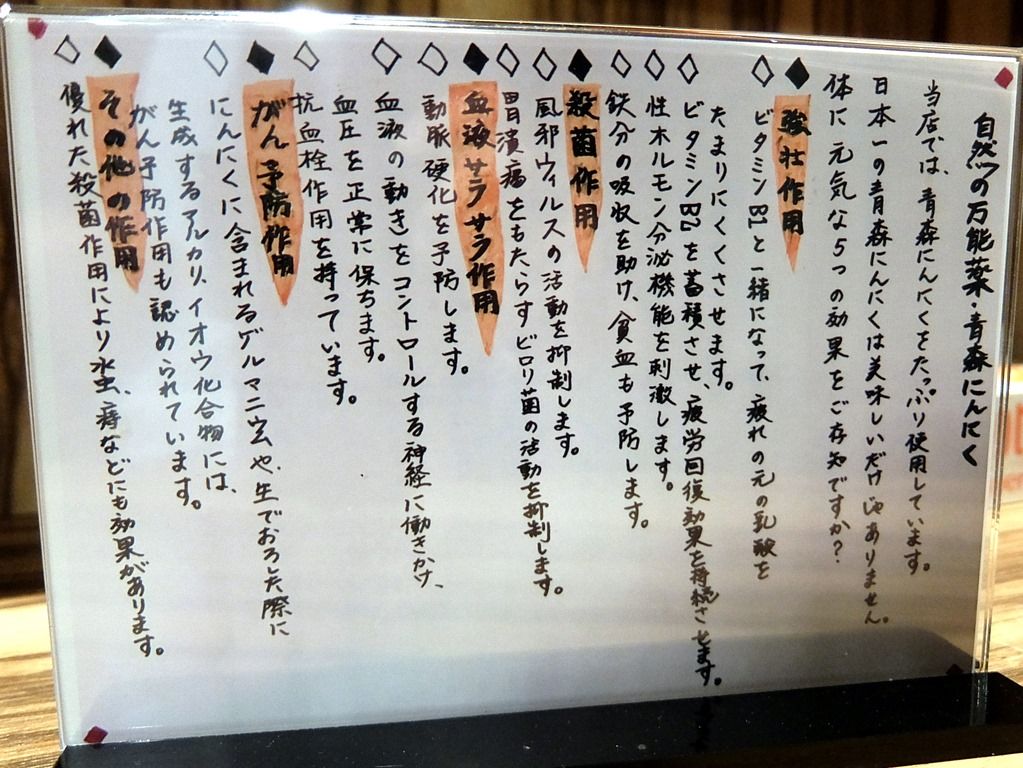 自然の万能薬・青森にんにく
当店では、青森にんにくをたっぷり使用しています。
日本一の青森にんにくは美味しいだけじゃありません。
体に元気な5つの効果をご存知ですか?
◆強壮作用
◇ビタミンB1と一緒になって、疲れの元の乳酸を
たまりにくくさせます。
◇ビタミンB2を蓄積させ、疲労回復効果を持続させます。
◇性ホルモン分泌機能を刺激します。
◇鉄分の吸収を助け、貧血も予防します。
◆殺菌作用
◇風邪ウィルスの活動を抑制します。
◇胃潰瘍をもたらすピロリ菌の活動を抑制します。
◆血液サラサラ作用
◇動脈硬化を予防します。
◇血液の動きをコントロールする神経に働きかけ、
血圧を正常に保ちます。
◇抗血栓作用を持っています。
◆がん予防作用
◇にんにくに含まれるゲルマニウムや、生でおろした際に
生成するアルカリ、イオウ化合物には、
がん予防作用も認められています。
◆その他の作用
◇優れた殺菌作用により水虫、痔などにも効果があります。